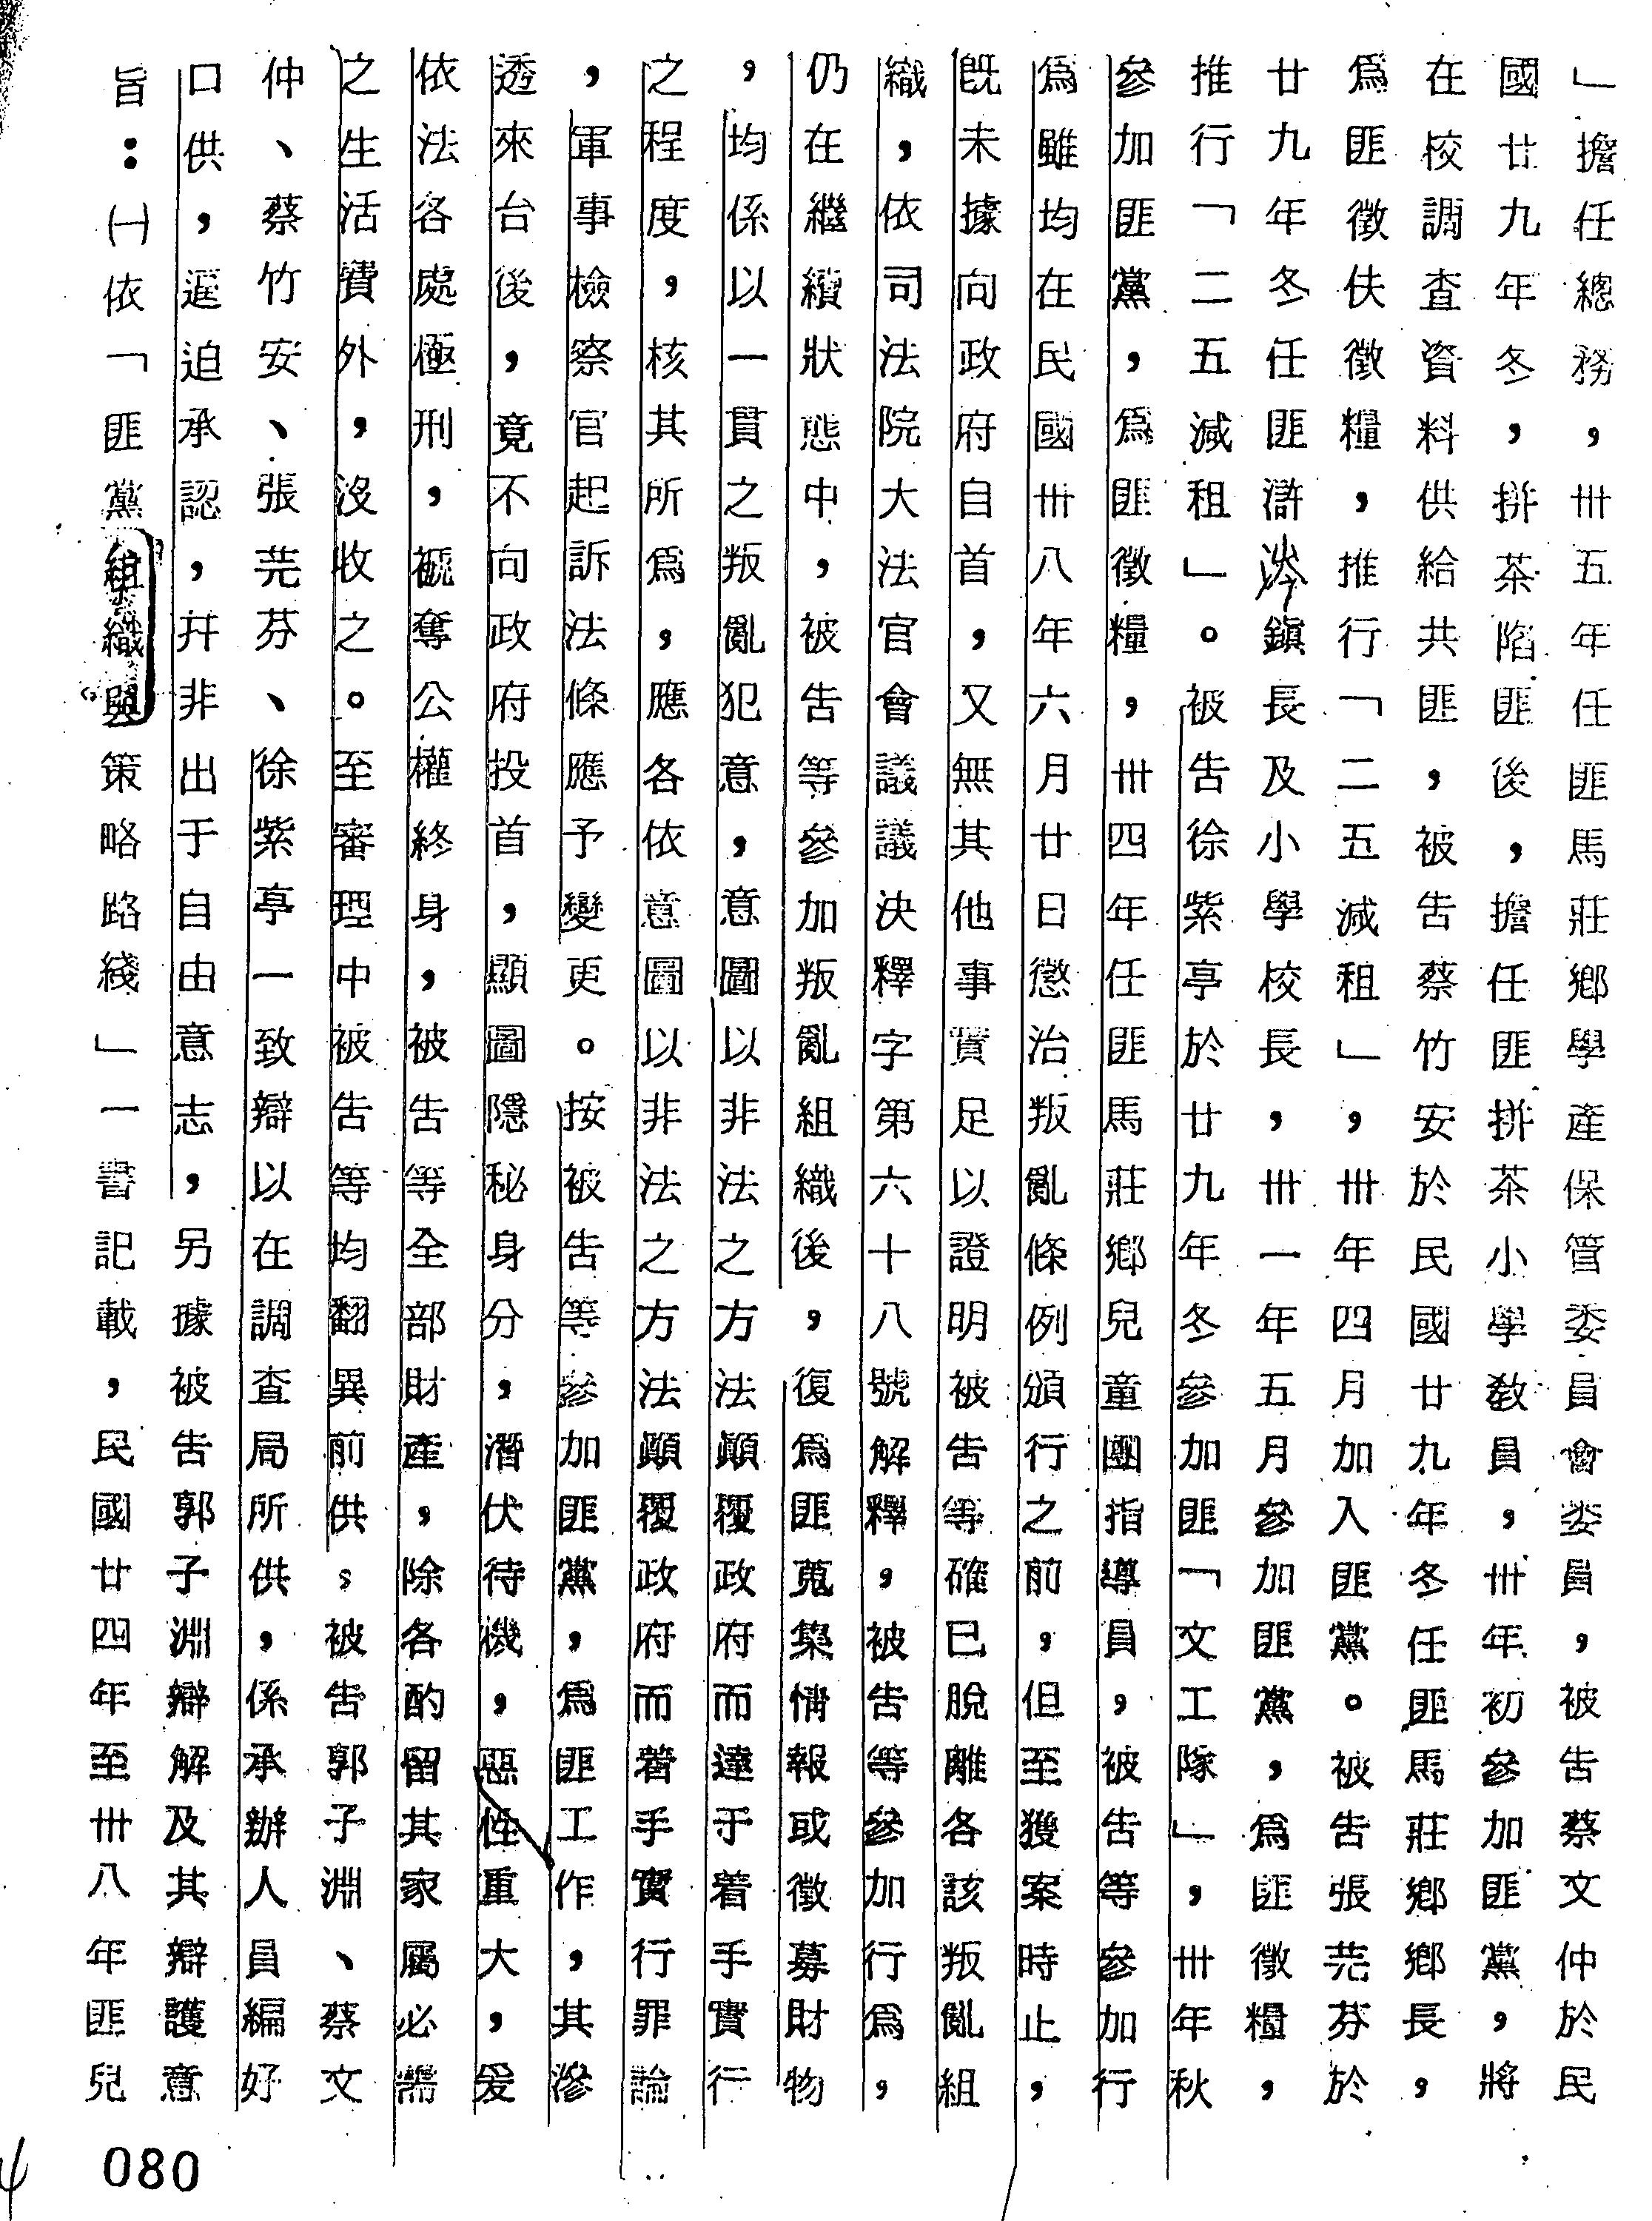 」擔任總務，卅五年任匪馬莊鄉學產保管委員會委員，被告蔡文仲於民
國廿九年冬，拼茶陷匪後，擔任匪拼茶小學教員，卅年初參加匪黨，將
在校調查資料供給共匪，被告蔡竹安於民國廿九年冬任匪馬莊鄉鄉長，
為匪徵伕徵糧，推行「二五減租」，卅年四月加入匪黨。被告張芫芬於
廿九年冬任匪滸鎮長及小學校長，卅一年五月參加匪黨，為匪徵糧，
推行「二五減租」。被告徐紫亭於廿九年冬參加匪「文工隊」，卅年秋
參加匪黨，為匪徵糧，卅四年任匪馬莊鄉兒童團指導員，被告等參加行
為雖均在民國卅八年六月廿日懲治叛亂條例頒行之前，但至獲案時止，
旣未據向政府自首，又無其他事實足以證明被告等確已脫離各該叛亂組
織，依司法院大法官會議議決釋字第六十八號解釋，被告等參加行為，
仍在繼續狀態中，被告等參加叛亂組織後，復為匪蒐集情報或徵募財物
，均係以一貫之叛亂犯意，意圖以非法之方法顚覆政府而達于着手實行
之程度，核其所為，應各依意圖以非法之方法顚覆政府而着手實行罪論
，軍事檢察官起訴法條應予變更。按被告等參加匪黨，為匪工作，其滲
透來台後，竟不向政府投首，顯圖隱秘身分，潛伏待機，惡性重大，爰
依法各處極刑，褫奪公權終身，被告等全部財產，除各酌留其家屬必需
之生活費外，沒收之。至審理中被告等均翻異前供。被告郭子淵、蔡文
仲、蔡竹安、張芫芬、徐紫亭一致辯以在調查局所供，係承辦人員編好
口供，逼迫承認，幷非出于自由意志，另據被告郭子淵辯解及其辯護意
旨：㈠依「匪黨組織與策略路綫」一書記載，民國廿四年至卅八年匪兒
080